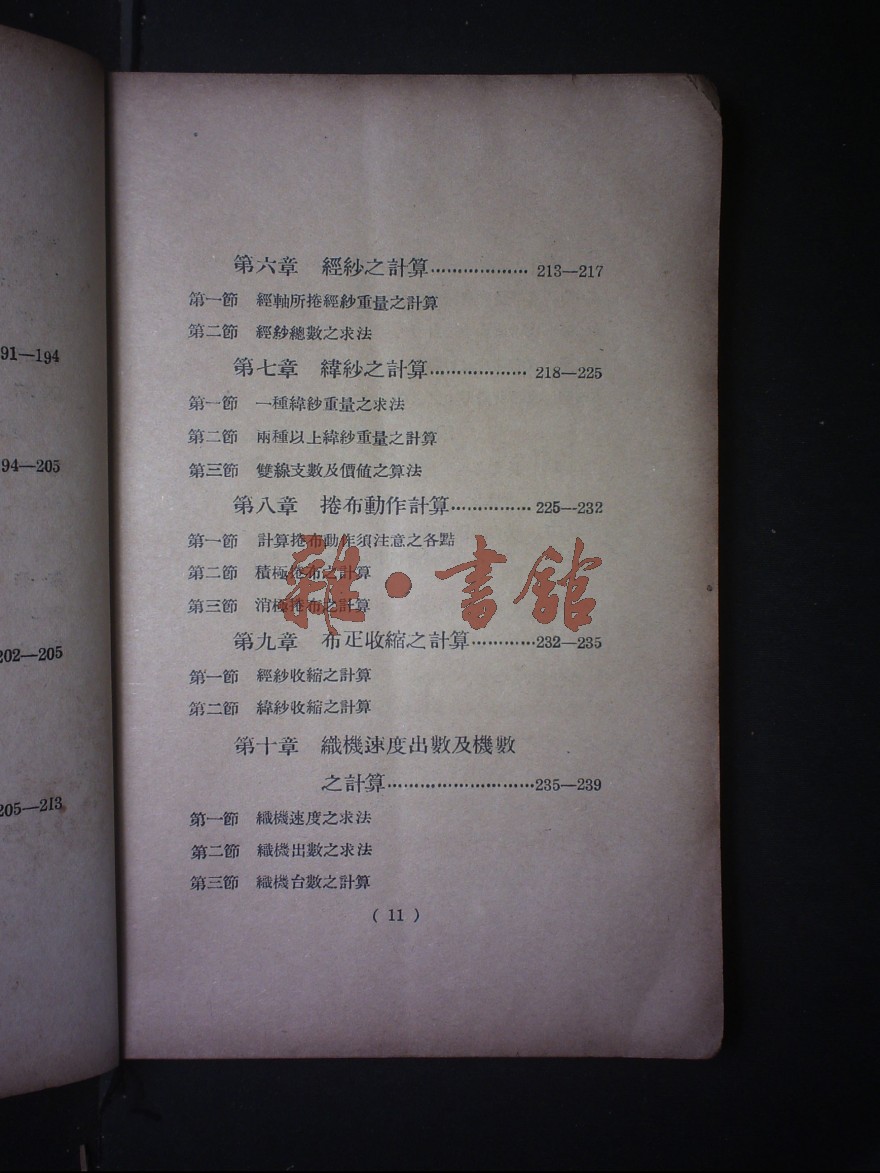 91—194
94—205
202—205
205—213
第六章 經紗之計算……………… 213—217
第一節 經軸所捲經紗重量之計算
第二節 經紗總數之求法
第七章 緯紗之計算……………… 218—225
第一節 一種緯紗重量之求法
第二節 兩種以上緯紗重量之計算
第三節 雙線支數及價値之算法
第八章 捲布動作計算…………… 225—232
第一節 計算捲布動作須注意之各點
第二節 積極捲布之計算
第三節 消極捲布之計算
雜·書館
第九章 布疋收縮之計算…………232—235
第一節 經紗收縮之計算
第二節 緯紗收縮之計算
第十章 織機速度出數及機數
之計算………………………235—239
第一節 織機速度之求法
第二節 織機出數之求法
第三節 織機台數之計算
( 11 )